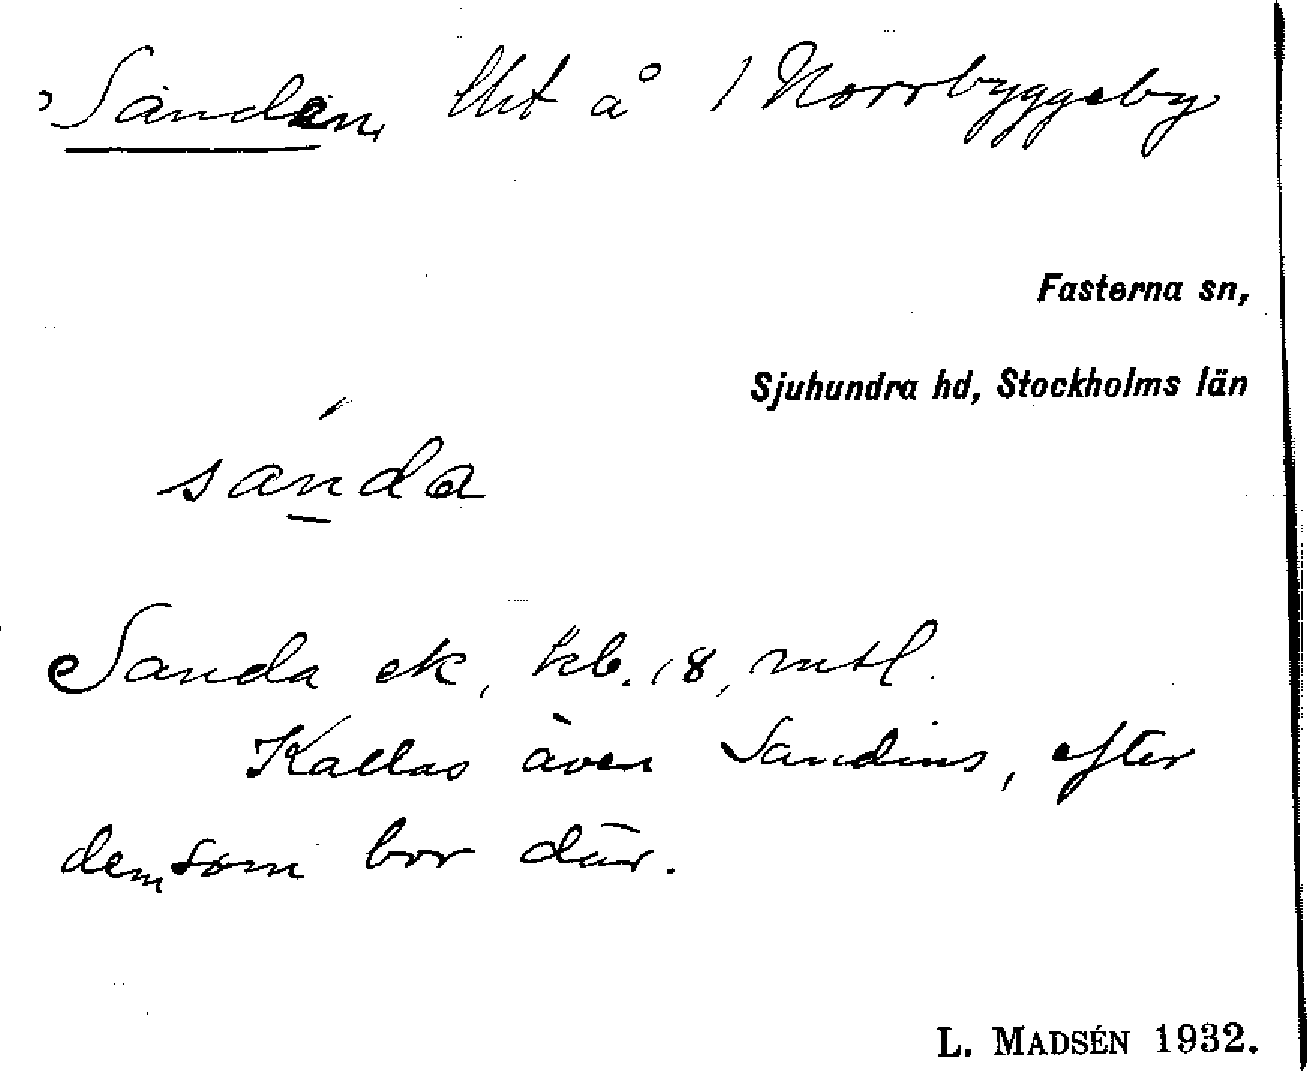 Sanden, lht å 1 Norrbyggeby
Fasterna sn,
Sjuhundra hd, Stockholms län
sánda
Sanda ek, kb. 18, mtl.
Kallas även Sandins, efter
dem som bor där.
L. MADSÉN 1932.